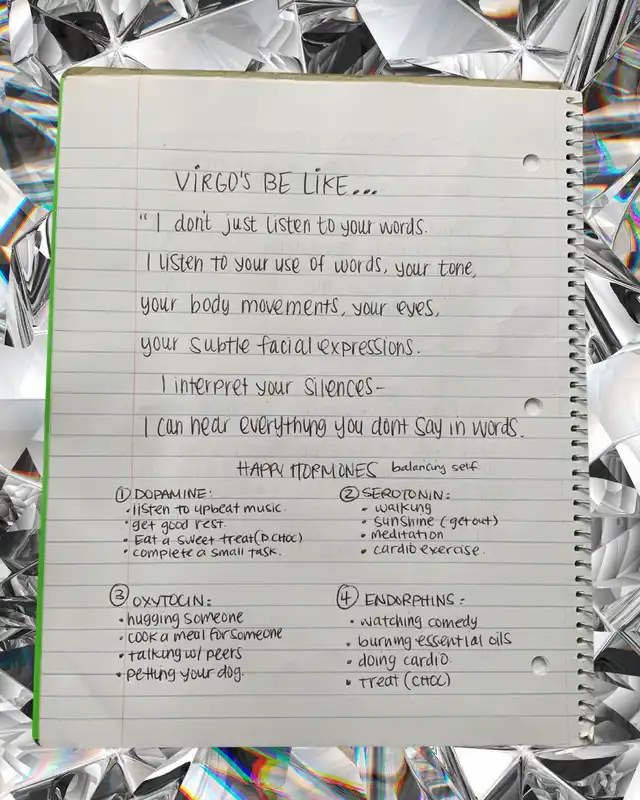 VIRGO'S BE LIKE...
" I don't just listen to your words.
I listen to your use of words, your tone,
your body movements, your eyes,
your subtle facial expressions.
I interpret your silences-
I can hear everything you dont say in words.
HAPPY HORMONES balancing self.
① DOPAMINE:
• listen to upbeat music.
• get good rest.
• Eat a sweet treat (D.CHOC)
• complete a small task.
② SEROTONIN:
• walking
• sunshine (get out)
• meditation
• cardio exercise.
③ OXYTOCIN:
• hugging someone
• cook a meal for someone
• talking w/ peers
• petting your dog.
④ ENDORPHINS:
• watching comedy
• burning essential oils
• doing cardio.
• treat (CHOC)